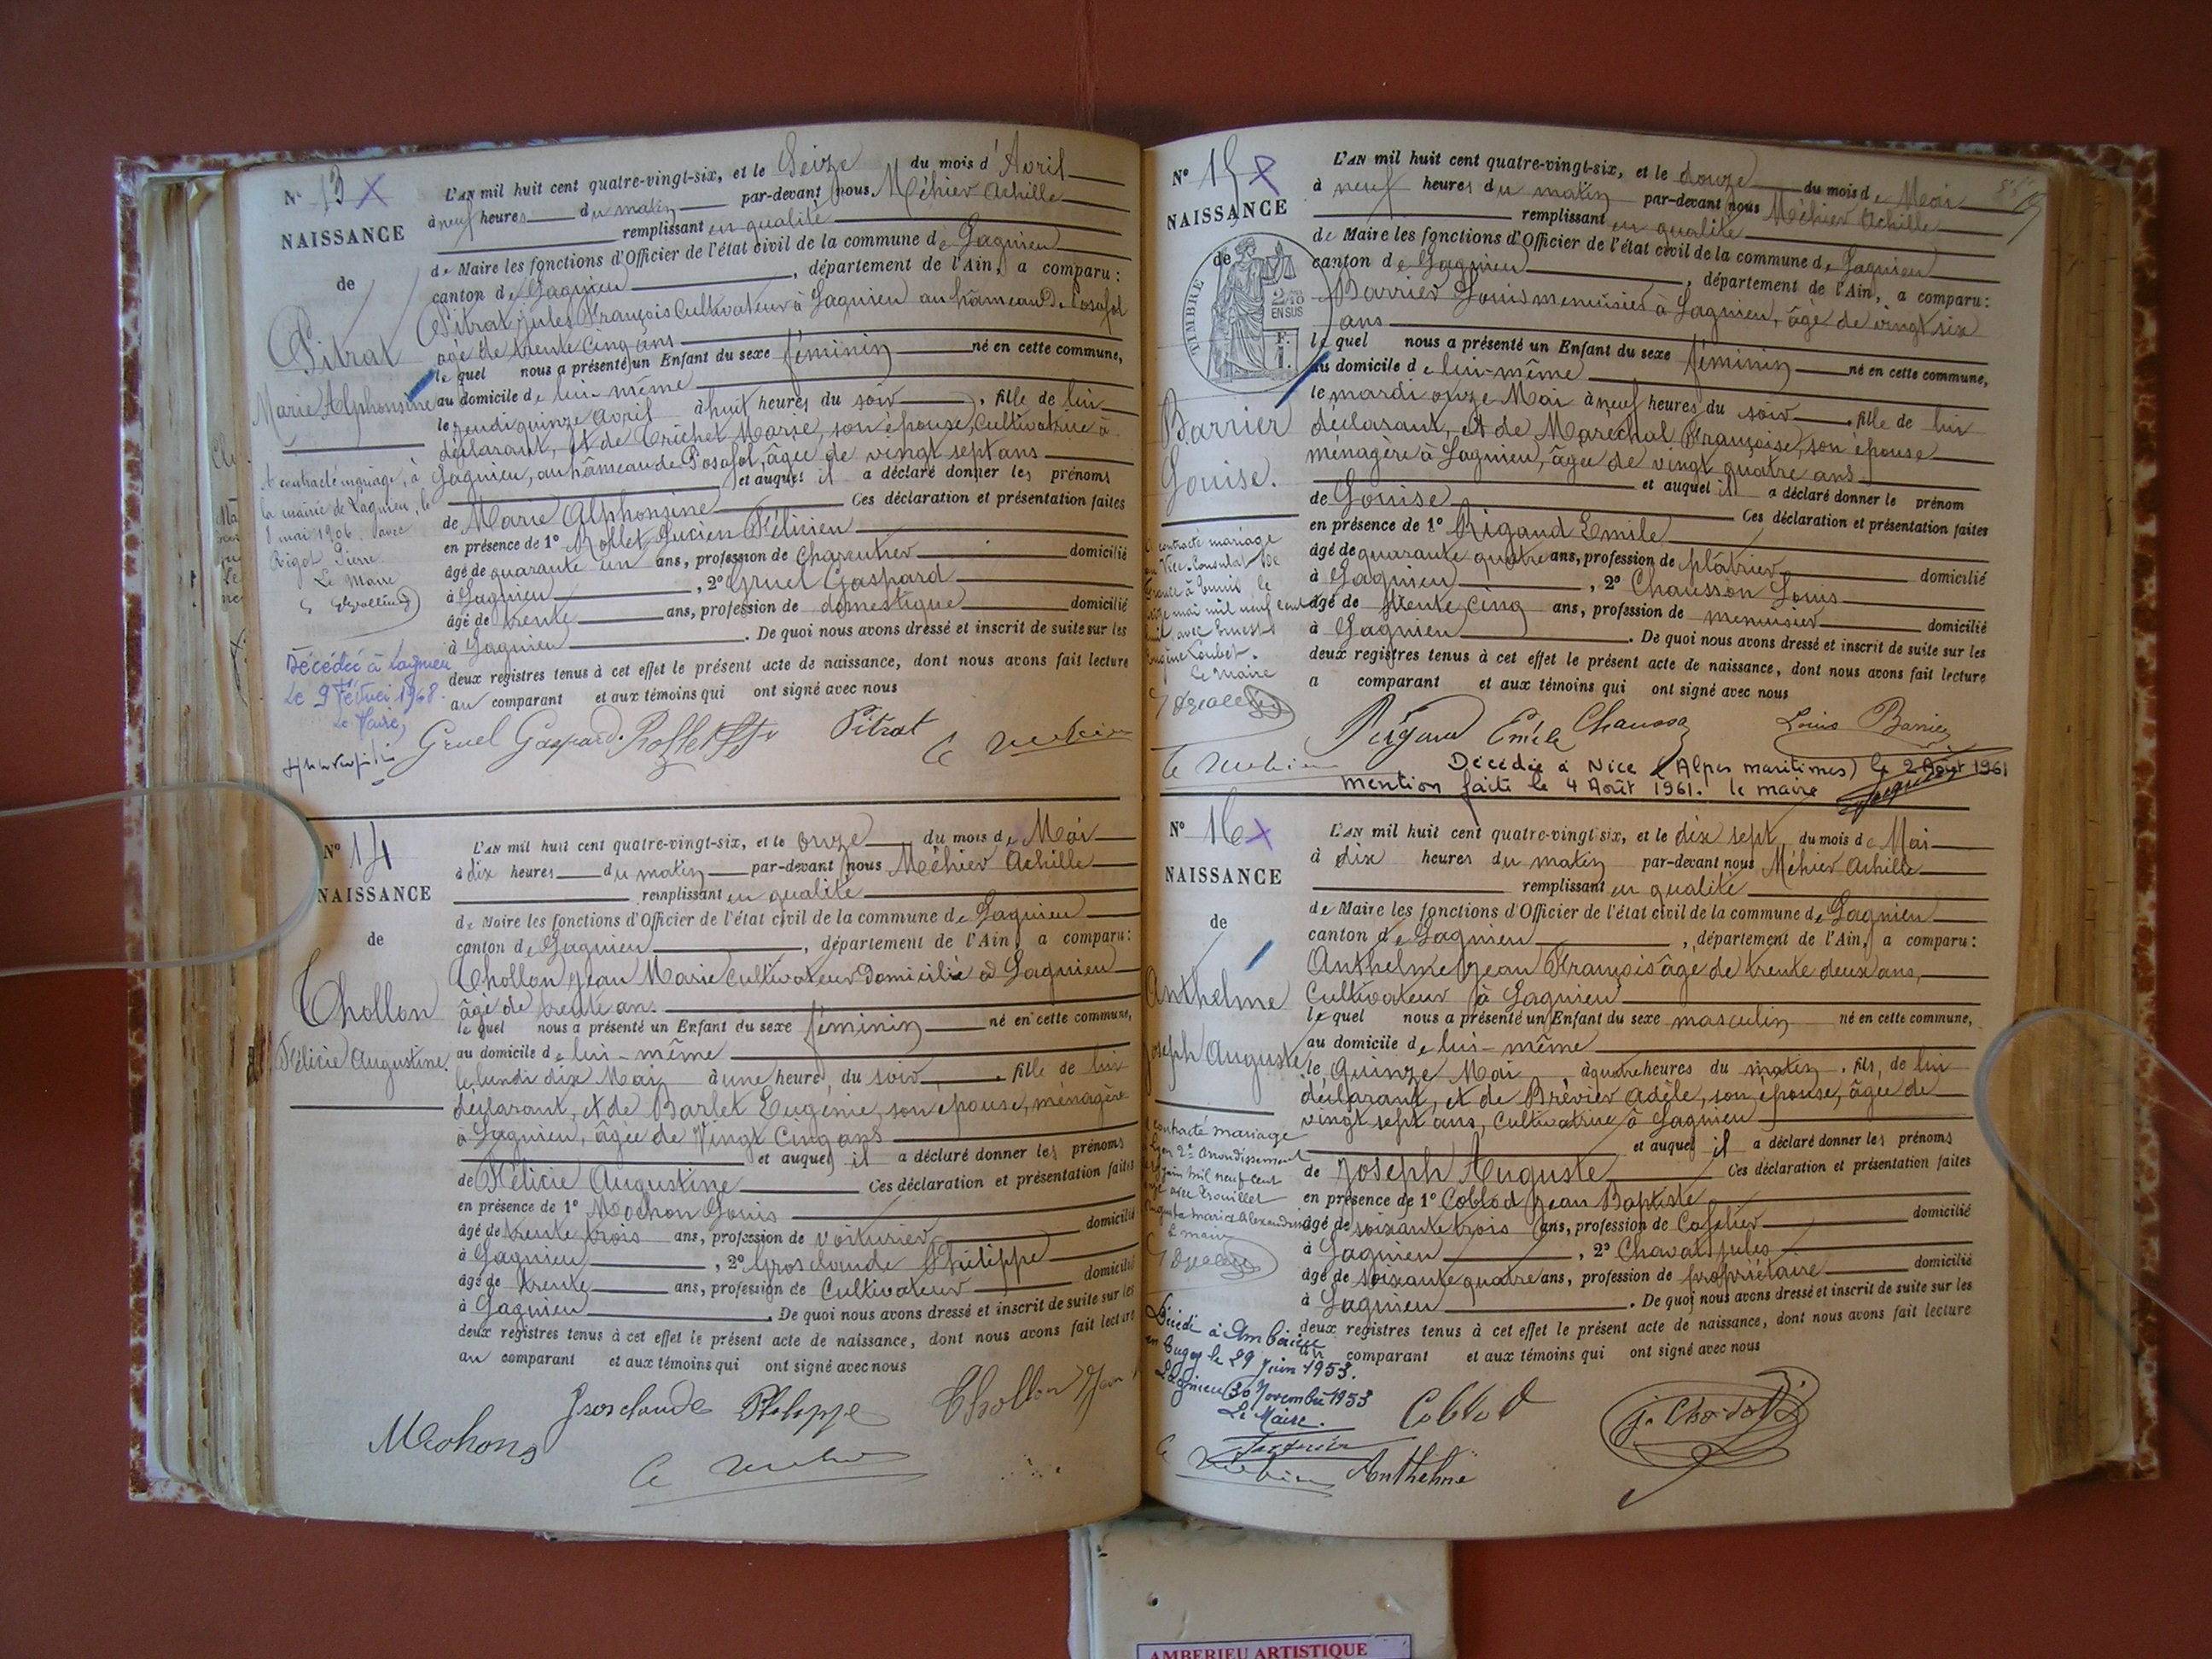 N° 13 X
NAISSANCE
de
Pitrat
Marie Alphonsine
A contracté mariage, à
la mairie de Lagnieu, le
8 mai 1906, avec
Rigot Pierre
Le Maire
Décédée à Lagnieu
Le 9 Février 1968.
Le Maire,
L'AN mil huit cent quatre-vingt-six, et le Seize du mois d'Avril
à neuf heures du matin par-devant nous Méhier Achille
remplissant en qualité
de Maire les fonctions d'Officier de l'état civil de la commune de Lagnieu
canton de Lagnieu, département de l'Ain, a comparu :
Pitrat Jules François Cultivateur à Lagnieu au hâmeau de Posafol
âgé de trente cinq ans
le quel nous a présenté un Enfant du sexe féminin né en cette commune,
au domicile de lui-même
le jeudi quinze Avril à huit heures du soir, fille de lui
déclarant, et de Trichet Marie, son épouse, Cultivatrice à
Lagnieu, au hâmeau de Posafol, âgée de vingt sept ans
et auquel il a déclaré donner les prénoms
de Marie Alphonsine Ces déclaration et présentation faites
en présence de 1° Rollet Lucien Félicien
âgé de quarante un ans, profession de Charcutier domicilié
à Lagnieu, 2° Gruel Gaspard
âgé de trente ans, profession de domestique domicilié
à Lagnieu. De quoi nous avons dressé et inscrit de suite sur les
deux registres tenus à cet effet le présent acte de naissance, dont nous avons fait lecture
au comparant et aux témoins qui ont signé avec nous
Gruel Gaspard. Rollet Pitrat
N° 14
NAISSANCE
de
Thollon
Félicie Augustine.
L'AN mil huit cent quatre-vingt-six, et le onze du mois de Mai
à dix heures du matin par-devant nous Méhier Achille
remplissant en qualité
de Maire les fonctions d'Officier de l'état civil de la commune de Lagnieu
canton de Lagnieu, département de l'Ain, a comparu:
Thollon Jean Marie Cultivateur Domicilié à Lagnieu
âgé de trente ans.
le quel nous a présenté un Enfant du sexe féminin né en cette commune,
au domicile de lui-même
le lundi dix Mai à une heure, du soir, fille de lui
déclarant, et de Barlet Eugénie, son épouse, ménagère
à Lagnieu, âgée de Vingt Cinq ans
et auquel il a déclaré donner les prénoms
de Félicie Augustine Ces déclaration et présentation faites
en présence de 1° Mochon Louis
âgé de trente trois ans, profession de voiturier domicilié
à Lagnieu, 2° Grosclaude Philippe
âgé de trente ans, profession de Cultivateur domicilié
à Lagnieu. De quoi nous avons dressé et inscrit de suite sur les
deux registres tenus à cet effet le présent acte de naissance, dont nous avons fait lecture
au comparant et aux témoins qui ont signé avec nous
Grosclaude Philippe Thollon Jean
N° 15 X
NAISSANCE
de
TIMBRE
2/10 EN SUS
Barrier
Louise.
contracté mariage
au Vice-Consulat de
France à Tunis le
mai mil neuf cent
avec Ernest
Eugène Loubet.
Le Maire
L'AN mil huit cent quatre-vingt-six, et le douze du mois de Mai
à neuf heures du matin par-devant nous Méhier Achille
remplissant en qualité
de Maire les fonctions d'Officier de l'état civil de la commune de Lagnieu
canton de Lagnieu, département de l'Ain, a comparu:
Barrier Louis menuisier à Lagnieu, âgé de vingt six
ans
le quel nous a présenté un Enfant du sexe féminin né en cette commune,
au domicile de lui-même
le mardi onze Mai à neuf heures du soir, fille de lui
déclarant, et de Maréchal Françoise, son épouse
ménagère à Lagnieu, âgée de vingt quatre ans
et auquel il a déclaré donner le prénom
de Louise Ces déclaration et présentation faites
en présence de 1° Rigaud Emile
âgé de quarante quatre ans, profession de plâtrier domicilié
à Lagnieu, 2° Chausson Louis
âgé de trente cinq ans, profession de menuisier domicilié
à Lagnieu. De quoi nous avons dressé et inscrit de suite sur les
deux registres tenus à cet effet le présent acte de naissance, dont nous avons fait lecture
a comparant et aux témoins qui ont signé avec nous
Rigaud Emile Louis Barrier
Décédée à Nice (Alpes maritimes) le 2 Août 1961
mention faite le 4 Août 1961. le maire
N° 16 X
NAISSANCE
de
Anthelme
Joseph Auguste
contracté mariage
Lyon 2e Arrondissement
juin mil neuf cent
avec Trouillet
Marie Alexandrine
Le maire
Décédé à Ambérieu
en Bugey le 29 Juin 1953.
Lagnieu 30 Novembre 1953
Le Maire.
L'AN mil huit cent quatre-vingt six, et le dix sept du mois de Mai
à dix heures du matin par-devant nous Méhier Achille
remplissant en qualité
de Maire les fonctions d'Officier de l'état civil de la commune de Lagnieu
canton de Lagnieu, département de l'Ain, a comparu:
Anthelme Jean François âgé de trente deux ans,
Cultivateur à Lagnieu
le quel nous a présenté un Enfant du sexe masculin né en cette commune,
au domicile de lui-même
le Quinze Mai à quatre heures du matin, fils, de lui
déclarant, et de Brévier Adèle, son épouse, âgée de
vingt sept ans, Cultivatrice à Lagnieu
et auquel il a déclaré donner les prénoms
de Joseph Auguste Ces déclaration et présentation faites
en présence de 1° Coblod Jean Baptiste
âgé de soixante trois ans, profession de Cafetier domicilié
à Lagnieu, 2° Chavat Jules
âgé de soixante quatre ans, profession de propriétaire domicilié
à Lagnieu. De quoi nous avons dressé et inscrit de suite sur les
deux registres tenus à cet effet le présent acte de naissance, dont nous avons fait lecture
au comparant et aux témoins qui ont signé avec nous
Coblod
Anthelme
AMBERIEU ARTISTIQUE